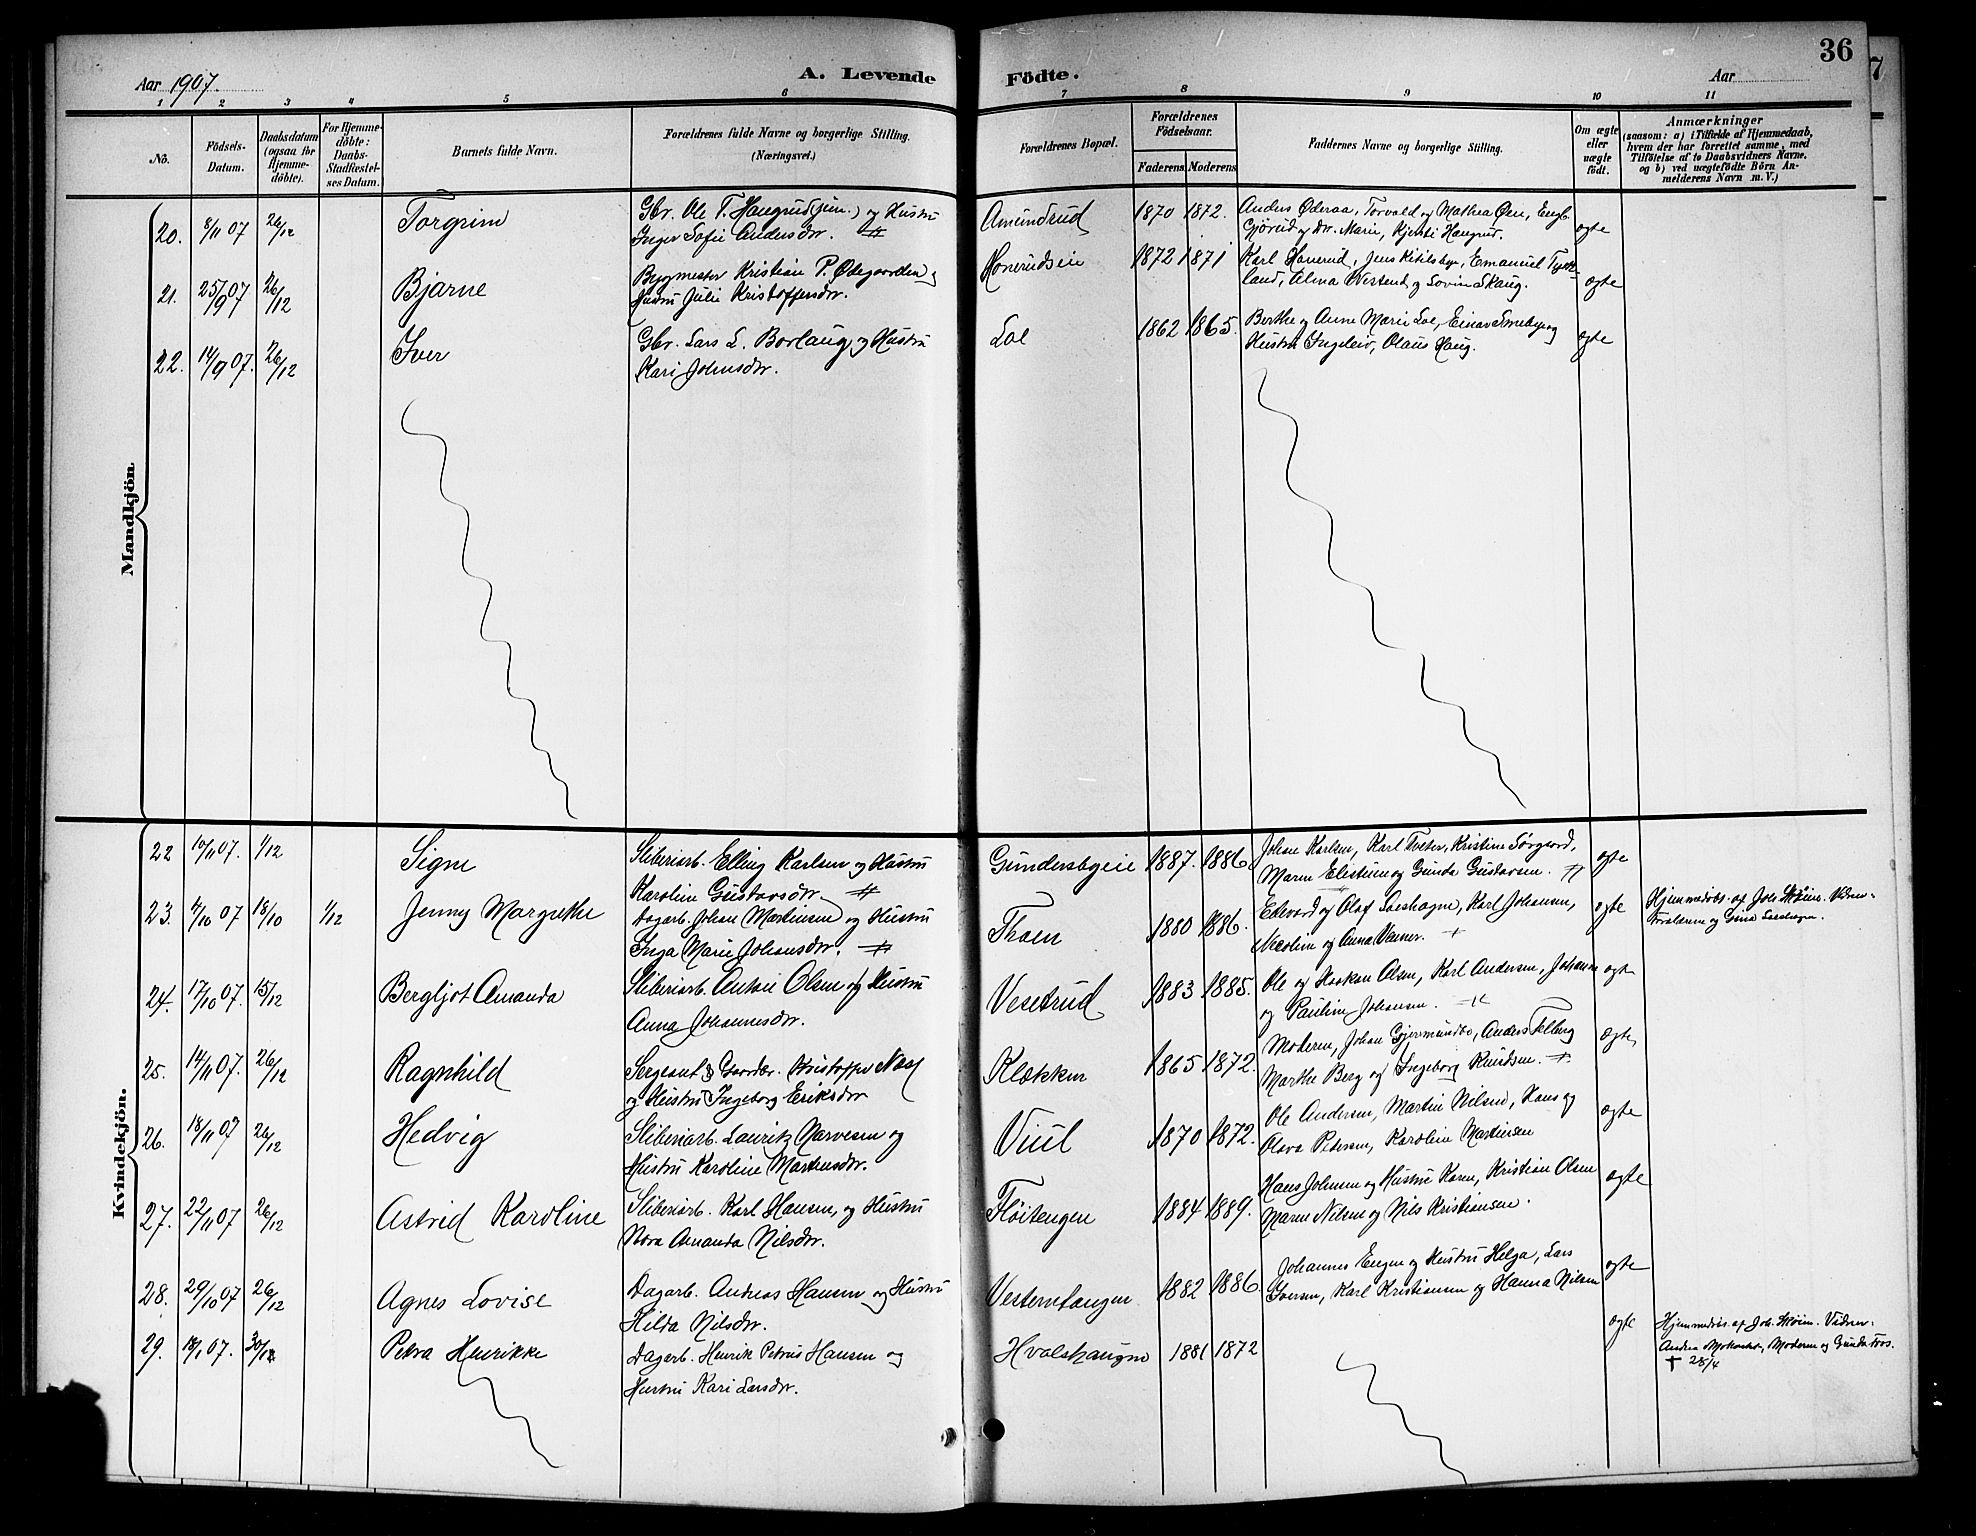 36
Aar 1907.
A. Levende Födte.
Aar
1 2 3 4 5 6 7 8 9 10 11
No.
Födsels-Datum.
Daabsdatum (ogsaa for Hjemme-döbte).
For Hjemme-döbte: Daabs-Stadfæstel-ses Datum.
Barnets fulde Navn.
Forældrenes fulde Navne og borgerlige Stilling.
(Næringsvei.)
Forældrenes Bopæl.
Forældrenes Födselsaar.
Faderens Moderens
Faddernes Navne og borgerlige Stilling.
Om ægte eller uægte født.
Anmærkninger
(saasom: a) i Tilfælde af Hjemmedaab,
hvem der har forrettet samme, med
Tilföielse af to Daabsvidners Navne,
og b) ved uægtefödte Börn An-
melderens Navn m. V.)
Mandkjön.
20. 8/11 07 26/12 Torgrim
Gbr. Ole T. Haugrud (jun.) og Hustru
Inger Sofie Andersdr.
Amundrud 1870 1872.
Anders Øderaa, Torvald og Mathea Øen, Engb.
Gjörud og Dtr. Marie, Kjersti Haugrud.
ægte
21. 25/9 07 26/12 Bjarne
Bygmester Kristian P. Ødegaarden og
Hustru Julie Kristoffersdr.
Honerudseie 1872 1871
Karl Honerud, Jens Kihlsbye, Emanuel
land, Alma Westend og Lovin Skaug.
ægte
22. 14/9 07. 26/12 Iver
Gbr. Lars L. Borlaug og Hustru
Kari Johnsdr.
Loe 1862 1865.
Berthe og Anne Marie Loe, Einar Smeby og
Hustru Ingeleiv, Olaus Haug.
ægte
Kvindekjön.
22 10/11 07. 1/12 Signe
Sliberiarb. Elling Karlsen og Hustru
Karoline Gustavsdr.
Gundersbyeie 1887. 1886
Johan Karlsen, Karl Tveter, Kristine Sørgaard,
Maren Elistum og Gunda Gustavsen.
ægte
23. 4/10 07 18/10 1/12 Jenny Margrethe
Dagarb. Johan Martinsen og Hustru
Inga Marie Johansdr.
Thoen 1880 1886.
Edevard og Olaf Soeshagne, Karl Johansen,
Nicoline og Anna Venner.
ægte
Hjemmedøbt af Joh. Støien. Vidner:
Forældrene og Soeshagen.
24. 17/10 07. 15/12 Bergljot Amanda
Sliberiarb. Anton Olsen og Hustru
Anna Johannesdr.
Vesetrud 1883 1885.
Ole og Haakon Olsen, Karl Andersen, Johanne
og Pauline Johansen.
ægte
25. 14/11 07. 26/12 Ragnhild
Sergeant & Gaardbr. Kristoffer Næs
og Hustru Ingeborg Eriksdr
Klækken 1865 1872.
Moderen, Johan Gjermundbo, Anders Tellerg
Marthe Berg og Ingeborg Knudsen.
ægte
26. 18/11 07 26/12 Hedvig
Sliberiarb. Lauritz Narvesen og
Hustru Karoline Martinsdr.
Viul 1870 1872.
Ole Andersen, Martin Nilsen, Hans og
Olava Pedersen, Karoline Martinsen
ægte
27. 22/11 07 26/12 Astrid Karoline
Sliberiarb. Karl Hansen, og Hustru
Nora Amanda Nilsdr.
Fløitengen 1884 1889.
Hans Johnsen og Hustru Karen, Kristian Olsen
Maren Nilsen og Nils Kristiansen.
ægte
28. 29/10 07 26/12 Agnes Lovise
Dagarb. Andreas Hansen og Hustru
Hilda Nilsdr.
Vesterntangen 1882 1886.
Johannes Engen og Hustru Helga, Lars
Iversen, Karl Kristiansen og Hanna Nilsen
ægte
29. 18/1 07. 30/12 Petra Henrikke
Dagarb. Henrik Petrus Hansen og
Hustru Kari Larsdr.
Hvalshaugne 1881 1872
ægte
Hjemmedøbt af Joh. Støien. Vidner:
Andrea, Moderen og Gunda
† 28/4